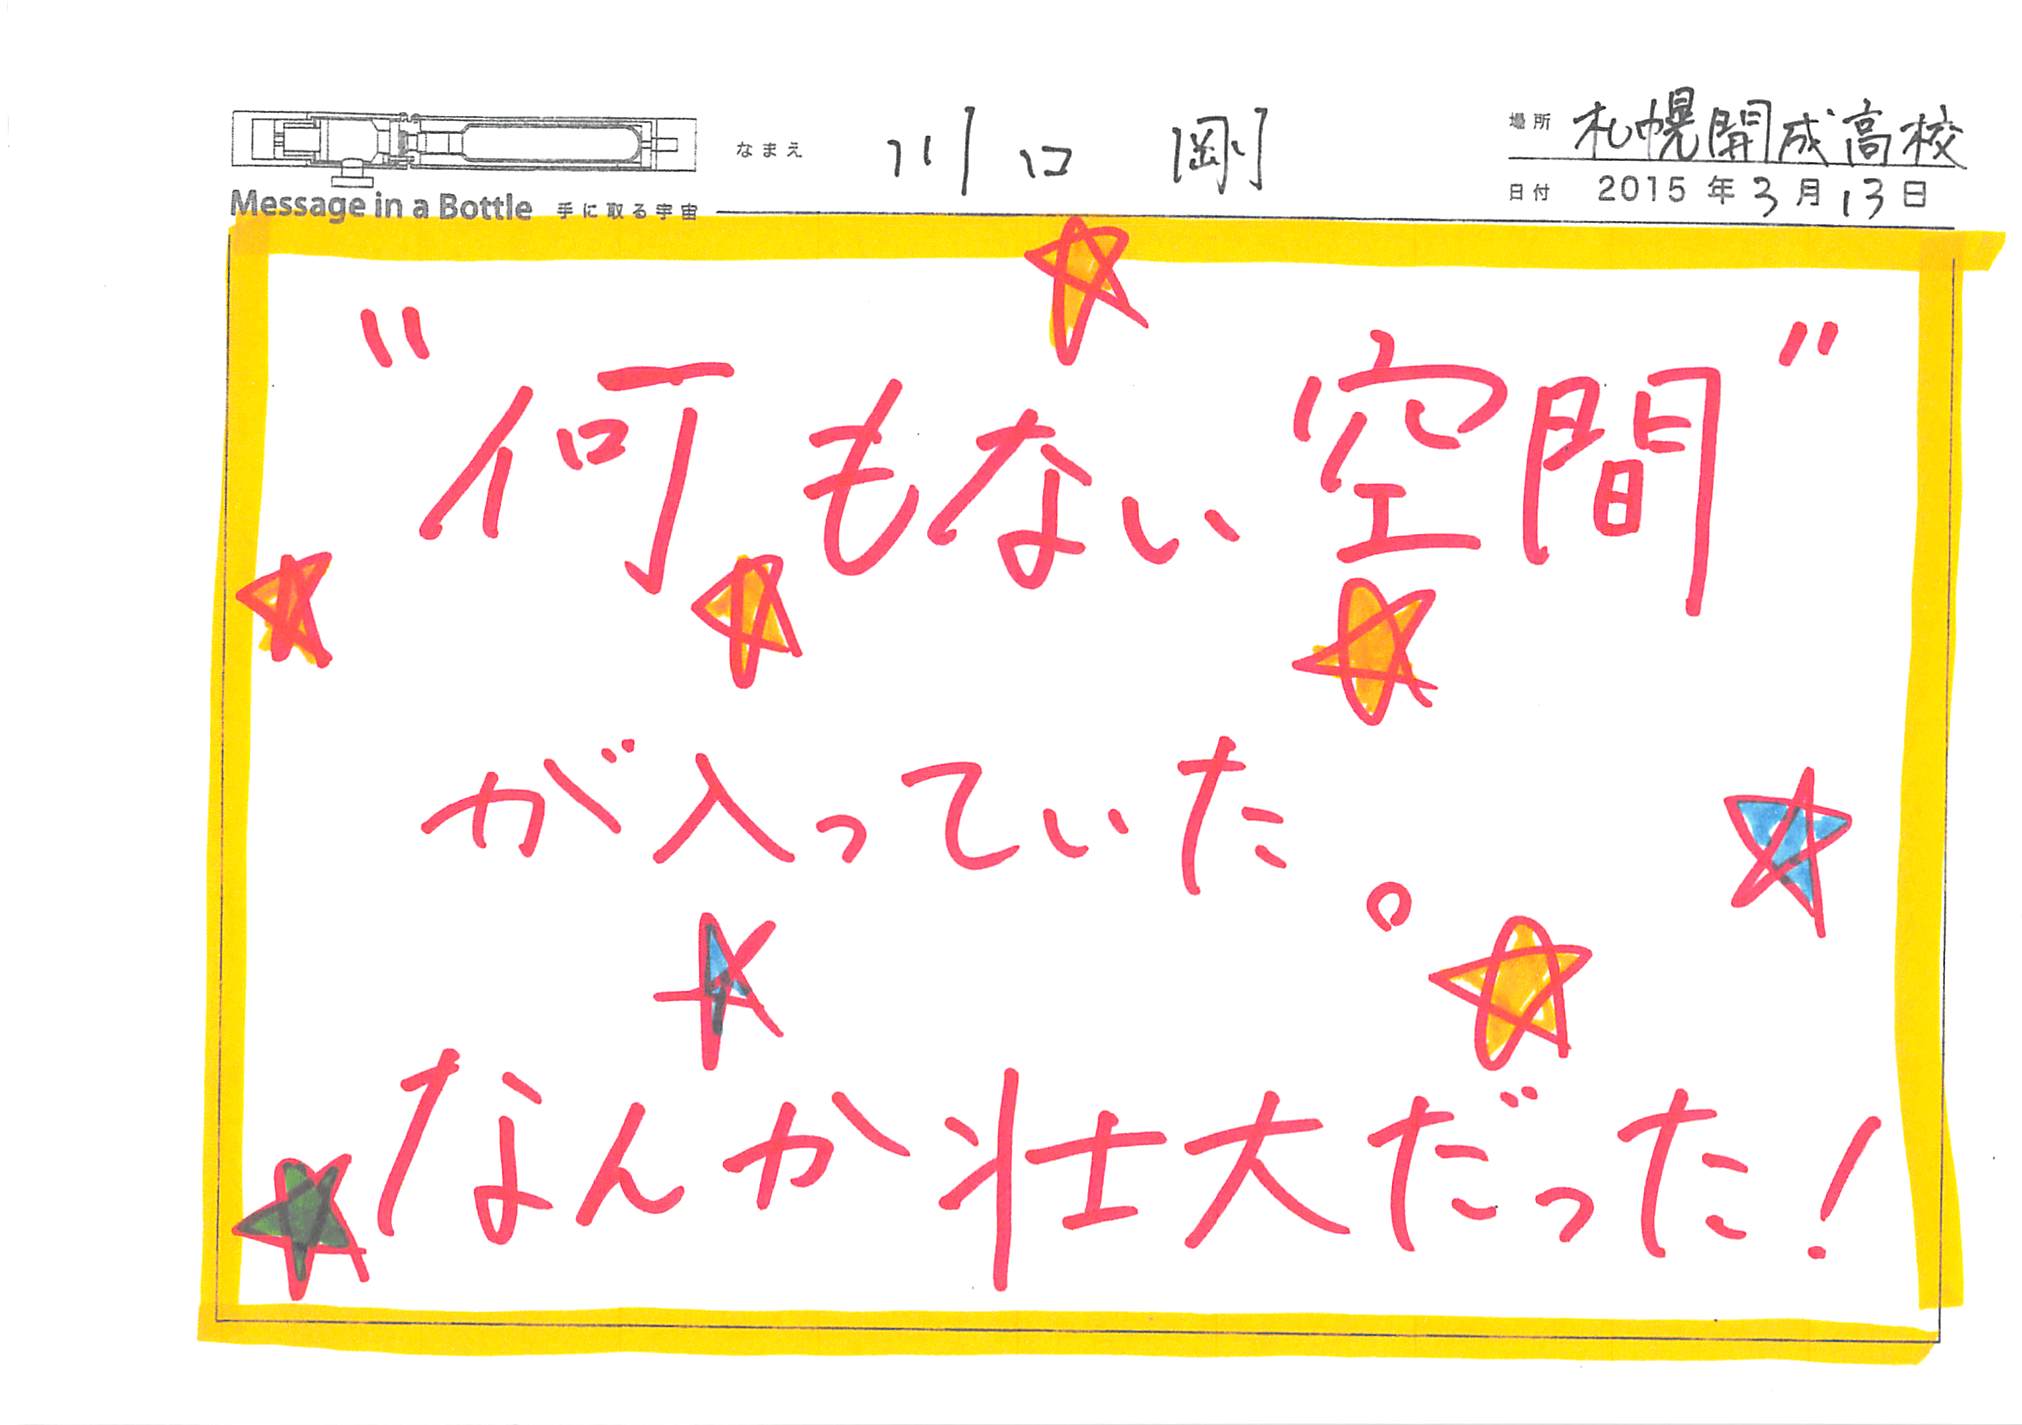 なまえ 川口 剛
場所 札幌開成高校
Message in a Bottle 手に取る宇宙
日付 2015年3月13日
"何もない空間"
が入っていた。
なんか壮大だった!